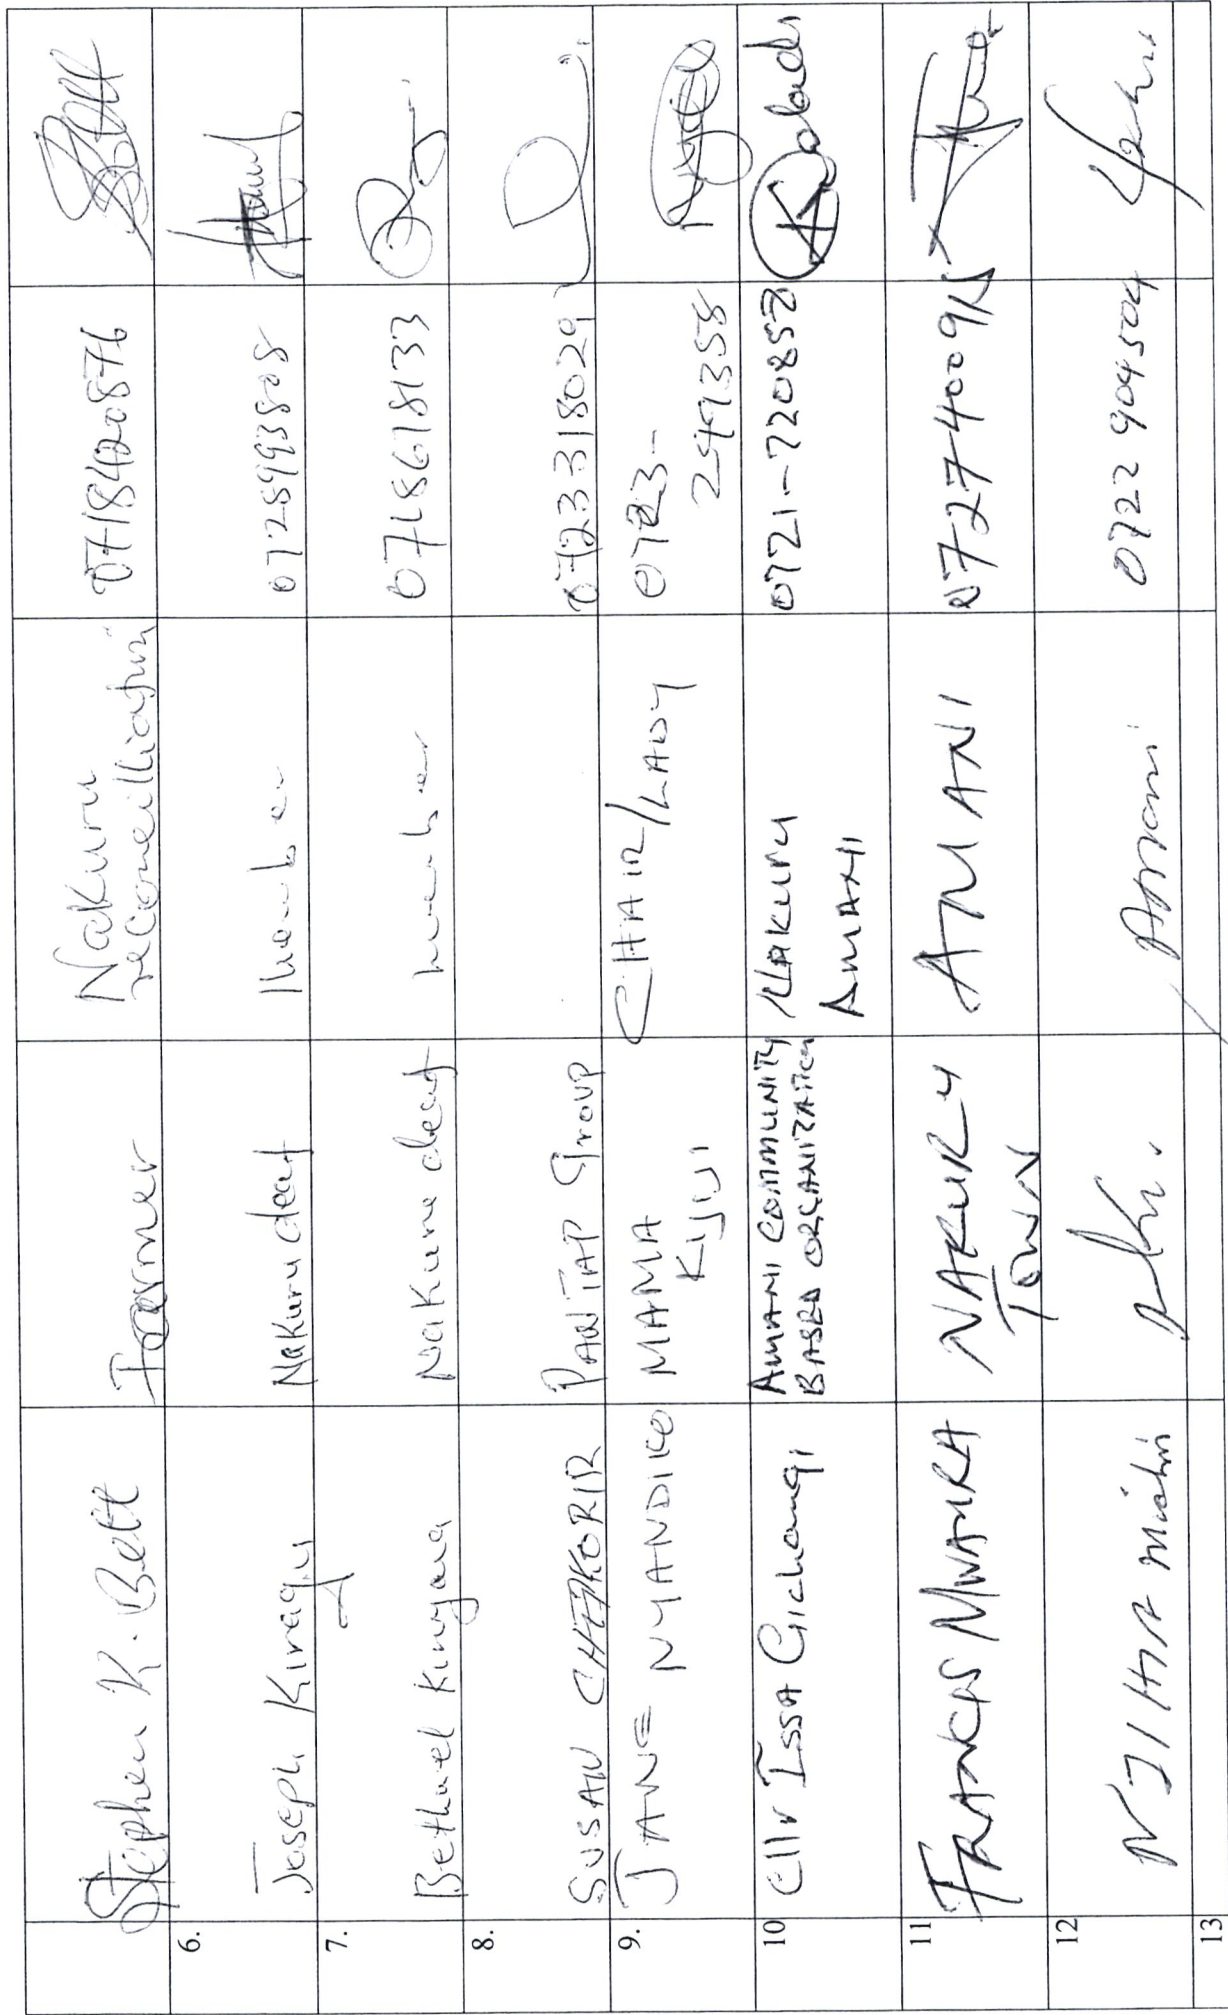 Stephen K. Bett
Farmer
Nakuru
reconcilliation
0718420876
6.
Joseph Kiragu
Nakuru deaf
member
0728993808
7.
Bethuel Kinyana
Nakuru deaf
member
0718618133
8.
SUSAN CHEKORIR
PANTAP Group
0723318029
9.
JANE NYANDIKO
MAMA
KIJIJI
CHAIR/LADY
0723-
249358
10
Cllr ISSA Gichangi
AMANI COMMUNITY
BASED ORGANIZATION
NAKURU
AMANI
0721-720852
11
FRANCIS MWAURA
NAKURU
TOWN
AMANI
0727400915
12
Amani
0722 904504
13